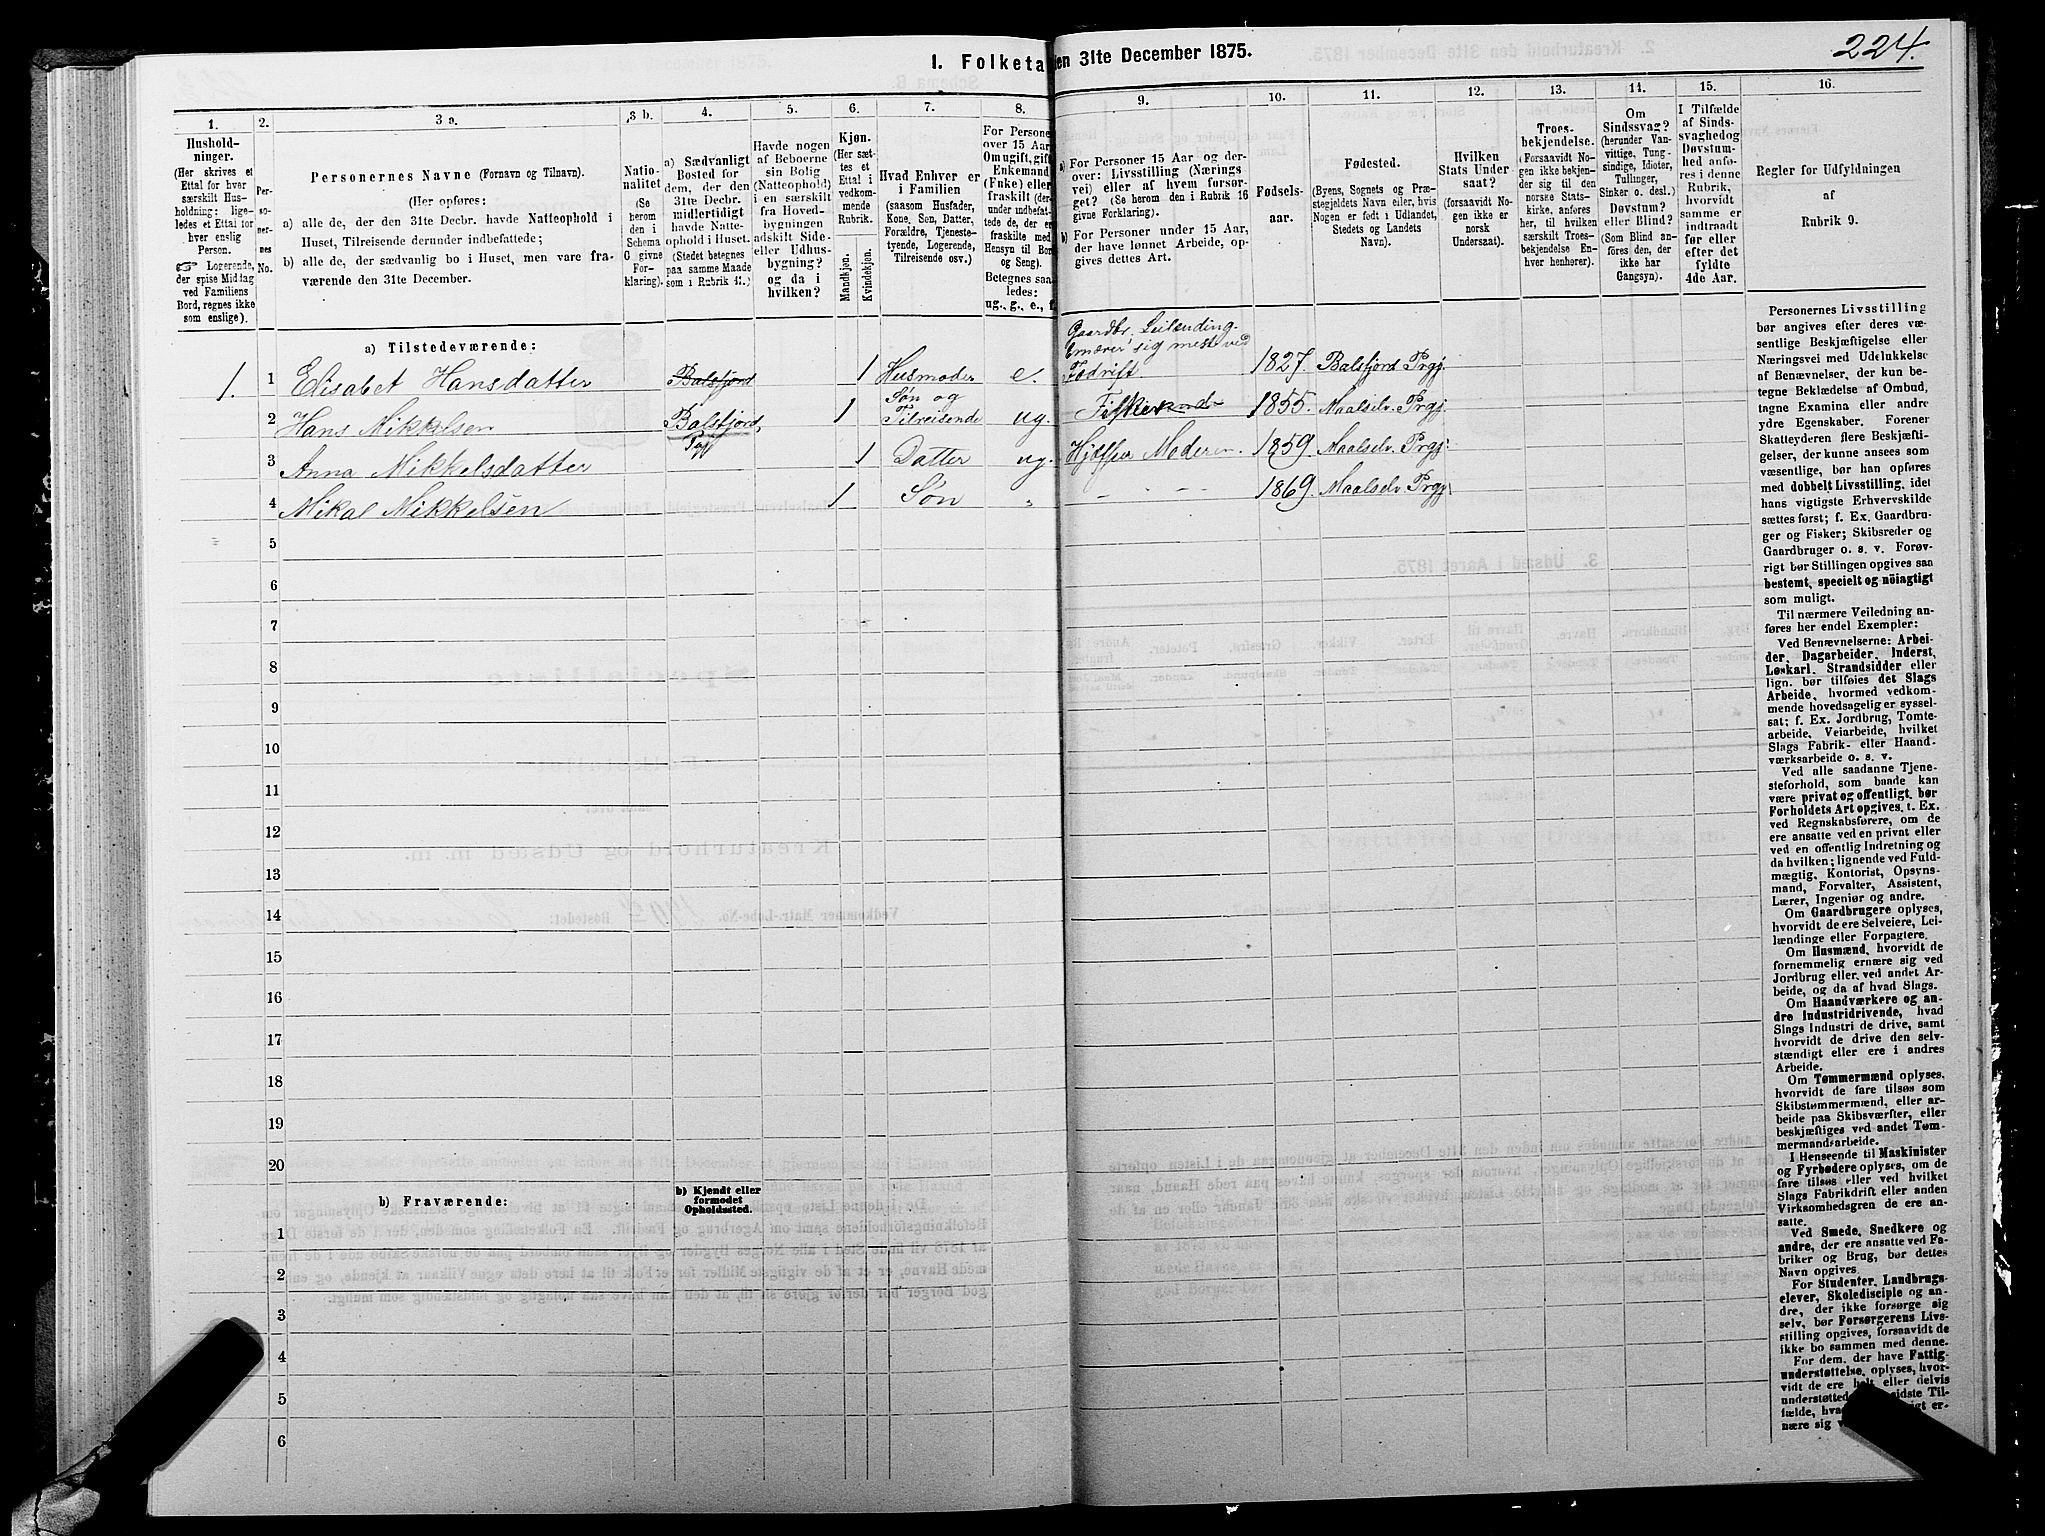 224.
I. Folketa
den 31te December 1875.
1.
2.
3 a.
3 b.
4.
5.
6.
7.
8.
9.
10.
11.
12.
13.
14.
15.
16.
Hushold-
ninger.
(Her skrives et
Ettal for hver
særskilt Hus-
holdning; lige-
ledes et Ettal for
hver enslig
Person.
☞ Logerende,
der spise Middag
ved Familiens
Bord, regnes ikke
som enslige).
Per-
so-
ner-
nes
No.
Personernes Navne (Fornavn og Tilnavn).
(Her opføres:
a) alle de, der den 31te Decbr. havde Natteophold i
Huset, Tilreisende derunder indbefattede;
b) alle de, der sædvanlig bo i Huset, men vare fra-
værende den 31te December.
Natio-
nalitet
(Se
herom
den i
Schema
C givne
For-
klaring).
a) Sædvanligt
Bosted for
dem, der den
31te Decbr.
midlertidigt
havde Natte-
ophold i Huset.
(Stedet betegnes
paa samme Maade
som i Rubrik 11.)
Havde nogen
af Beboerne
sin Bolig
(Natteophold)
i en særskilt
fra Hoved-
bygningen
adskilt Side-
eller Udhus-
bygning?
og da i
hvilken?
Kjøn.
(Her sæt-
tes et
Ettal i
vedkom-
mende
Rubrik.
Mandkjøn.
Kvindekjøn.
Hvad Enhver er
i Familien
(saasom Husfader,
Kone, Søn, Datter,
Forældre, Tjeneste-
tyende, Logerende,
Tilreisende osv.)
For Persone
over 15 Aar
Om ugift, gift
Enkemand
(Enke) eller
fraskilt (der-
under indbefat-
tede de, der er
fraskilte med
Hensyn til Bor
og Seng).
Betegnes saa-
ledes:
ug., g., e., f.
a) For Personer 15 Aar og der-
over: Livsstilling (Nærings
vei) eller af hvem forsør-
get? (Se herom den i Rubrik 16
givne Forklaring).
b) For Personer under 15 Aar,
der have lønnet Arbeide, op-
gives dettes Art.
Fødsels-
aar.
Fødested.
(Byens, Sognets og Præ-
stegjeldets Navn eller, hvis
Nogen er født i Udlandet,
Stedets og Landets
Navn).
Hvilken
Stats Under-
saat?
(forsaavidt No-
gen ikke er
norsk
Undersaat).
Troes-
bekjendelse.
(Forsaavidt No-
gen ikke bekjen-
der sig til den
norske Stats-
kirke, anføres
her, til hvilken
særskilt Troes-
bekjendelse En-
hver henhører).
Om
Sindssvag?
(herunder Van-
vittige, Tung-
sindige, Idioter,
Tullinger,
Sinker o. desl.)
Døvstum?
eller Blind?
(Som Blind an-
føres den, der
ikke har
Gangsyn).
I Tilfælde
af Sinds-
svaghed og
Døvstum-
hed anfø-
res i denne
Rubrik,
hvorvidt
samme er
indtraadt
før eller
efter det
fyldte
4de Aar.
Regler for Udfyldningen
af
Rubrik 9.
a) Tilstedeværende:
Gaardbr. Leilænding.
Ernærer sig mest ved
1. 1 Elisabet Hansdatter Balsfjord 1 Husmoder e. Fædrift 1827. Balsfjord Prgj.
2 Hans Mikkelsen Balsfjord Pgj 1 Søn og Tilreisende ug. Fisker 1855. Maalselv. Prgj.
3 Anna Mikkelsdatter 1 Datter ug. Hjælper Moderen. 1859. Maalselv Prgj.
4 Mikal Mikkelsen 1 Søn „ – – – 1869. Maalselv Prgj
5
6
7
8
9
10
11
12
13
14
15
16
17
18
19
20
b) Fraværende:
b) Kjendt eller
formodet
Opholdssted.
1
2
3
4
5
6
Personernes Livsstilling
bør angives efter deres væ-
sentlige Beskjæftigelse eller
Næringsvei med Udelukkelse
af Benævnelser, der kun be-
tegne Beklædelse af Ombud,
tagne Examina eller andre
ydre Egenskaber. Forener
Skatteyderen flere Beskjæfti-
gelser, der kunne ansees som
væsentlige, bør han opføres
med dobbelt Livsstilling, idet
hans vigtigste Erhvervskilde
sættes først; f. Ex. Gaardbru-
ger og Fisker; Skibsreder og
Gaardbruger o. s. v. Forøv-
rigt bør Stillingen opgives saa
bestemt, specielt og nøiagtigt
som muligt.
Til nærmere Veiledning an-
føres her endel Exempler:
Ved Benævnelserne: Arbei-
der, Dagarbeider, Inderst,
Løskarl, Strandsidder eller
lign. bør tilføies det Slags
Arbeide, hvormed vedkom-
mende hovedsagelig er syssel-
sat; f. Ex. Jordbrug, Tomte-
arbeide, Veiarbeide, hvilket
Slags Fabrik- eller Haand-
værksarbeide o. s. v.
Ved alle saadanne Tjene-
steforhold, som baade kan
være privat og offentligt, bør
Forholdets Art opgives, t. Ex.
ved Regnskabsførere, om de
ere ansatte ved en privat eller
ved en offentlig Indretning og
da hvilken; lignende ved Fuld-
mægtig, Kontorist, Opsyns-
mand, Forvalter, Assistent,
Lærer, Ingeniør og andre.
Om Gaardbrugere oplyses,
hvorvidt de ere Selveiere, Lei-
lændinge eller Forpagtere.
Om Husmænd, hvorvidt de
fornemmelig ernære sig ved
Jordbrug eller ved andet Ar-
beide, og da af hvad Slags.
Om Haandværkere og an-
dre Industridrivende, hvad
Slags Industri de drive, samt
hvorvidt de drive den selv-
stændigt eller ere i andres
Arbeide.
Om Tømmermænd oplyses,
hvorvidt de fare tilsøs som
Skibstømmermænd, eller ar-
beide paa Skibsværfter, eller
beskjæftiges ved andet Tøm-
mermandsarbeide.
I Henseende til Maskinister
og Fyrbødere oplyses, om de
fare tilsøs eller ved hvilket
Slags Fabrikdrift eller anden
Virksomhedsgren de ere an-
satte.
Ved Smede, Snedkere og
andre, der ere ansatte ved Fa-
briker og Brug, bør dettes
Navn opgives.
For Studenter, Landbrugs-
elever, Skoledisciple og an-
dre, der ikke forsørge sig
selv, bør Forsørgerens Livs-
stilling opgives, forsaavidt de
ikke bo sammen med denne.
For dem, der have Fattig-
understøttelse, oplyses, hvor-
vidt de ere helt eller delvis
understøttede
sidste Til-
fælde, hva